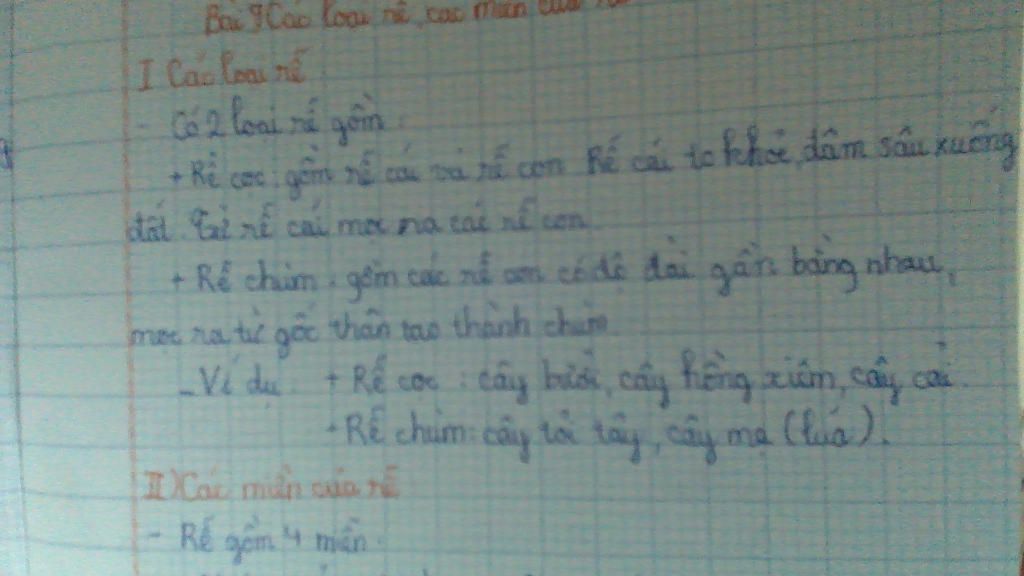 Bài 9 Các loại rễ, các miền của rễ
I Các loại rễ
- Có 2 loại rễ gồm:
+ Rễ cọc: gồm rễ cái và rễ con. Rễ cái to khỏe, đâm sâu xuống
đất. Từ rễ cái mọc ra các rễ con
+ Rễ chùm: gồm các rễ con có độ dài gần bằng nhau,
mọc ra từ gốc thân tạo thành chùm.
- Ví dụ: + Rễ cọc: cây bưởi, cây hồng xiêm, cây cải.
+ Rễ chùm: cây tỏi tây, cây mạ (lúa).
II) Các miền của rễ
- Rễ gồm 4 miền.